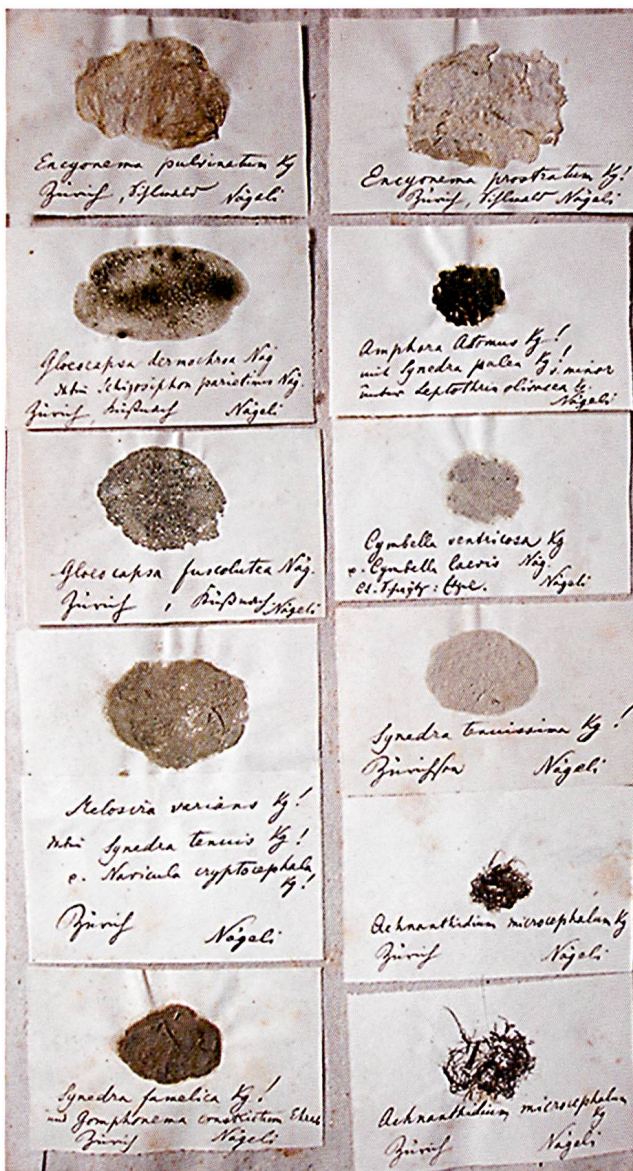 Encyonema pulvinatum Kg
Zürich, Sihlwald Nägeli
Gloeocapsa dermochroa Näg
Schizosiphon parietinus Näg.
Zürich, Küßnach Nägeli
Gloeocapsa fuscolutea Näg.
Zürich, Küßnach Nägeli
Melosira varians Kg!
Synedra tenuis Kg!
e. Navicula cryptocephala
Kg!
Zürich Nägeli
Synedra famelica Kg!
und Gomphonema constrictum Ehrenb
Zürich Nägeli
Encyonema prostratum Kg!
Zürich, Sihlwald Nägeli
Amphora Atomus Kg!
mit Synedra palea Kg! v. minor
unter Leptothrix olivacea
Nägeli
Cymbella ventricosa Kg
e. Cymbella laevis Näg.
Nägeli
Synedra tenuissima Kg!
Zürichsee Nägeli
Achnanthidium microcephalum Kg
Zürich Nägeli
Achnanthidium microcephalum
Kg
Zürich Nägeli